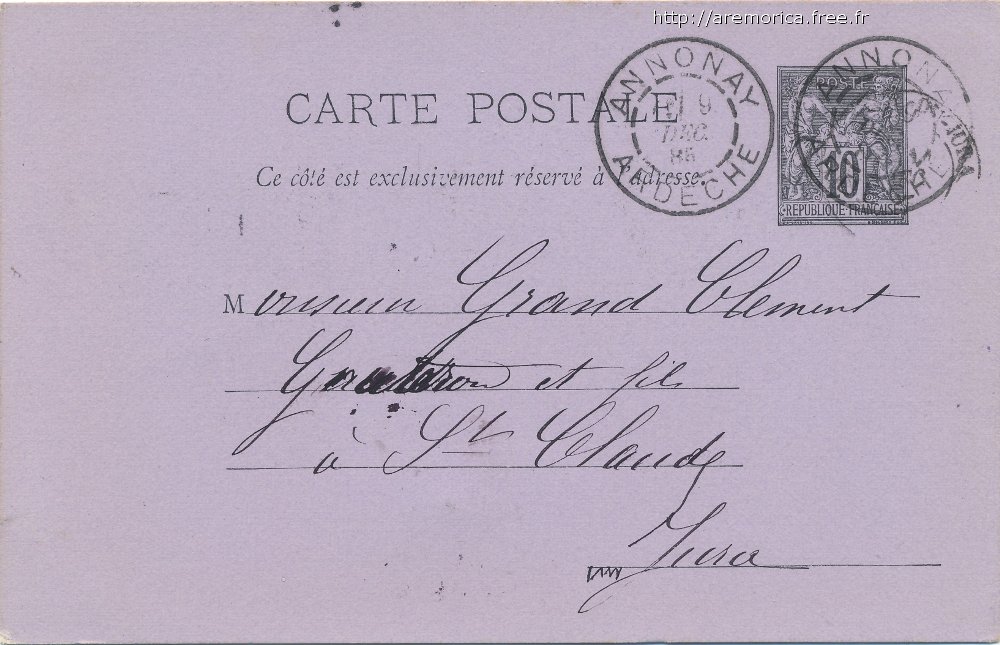 http://aremorica.free.fr
ANNONAY
9
DEC.
85
ARDECHE
POSTE
10
REPUBLIQUE FRANÇAISE
CARTE POSTALE
Ce côté est exclusivement réservé à l'adresse.
Monsieur Grand Clement
Gautron et fils
à St Claude
Jura